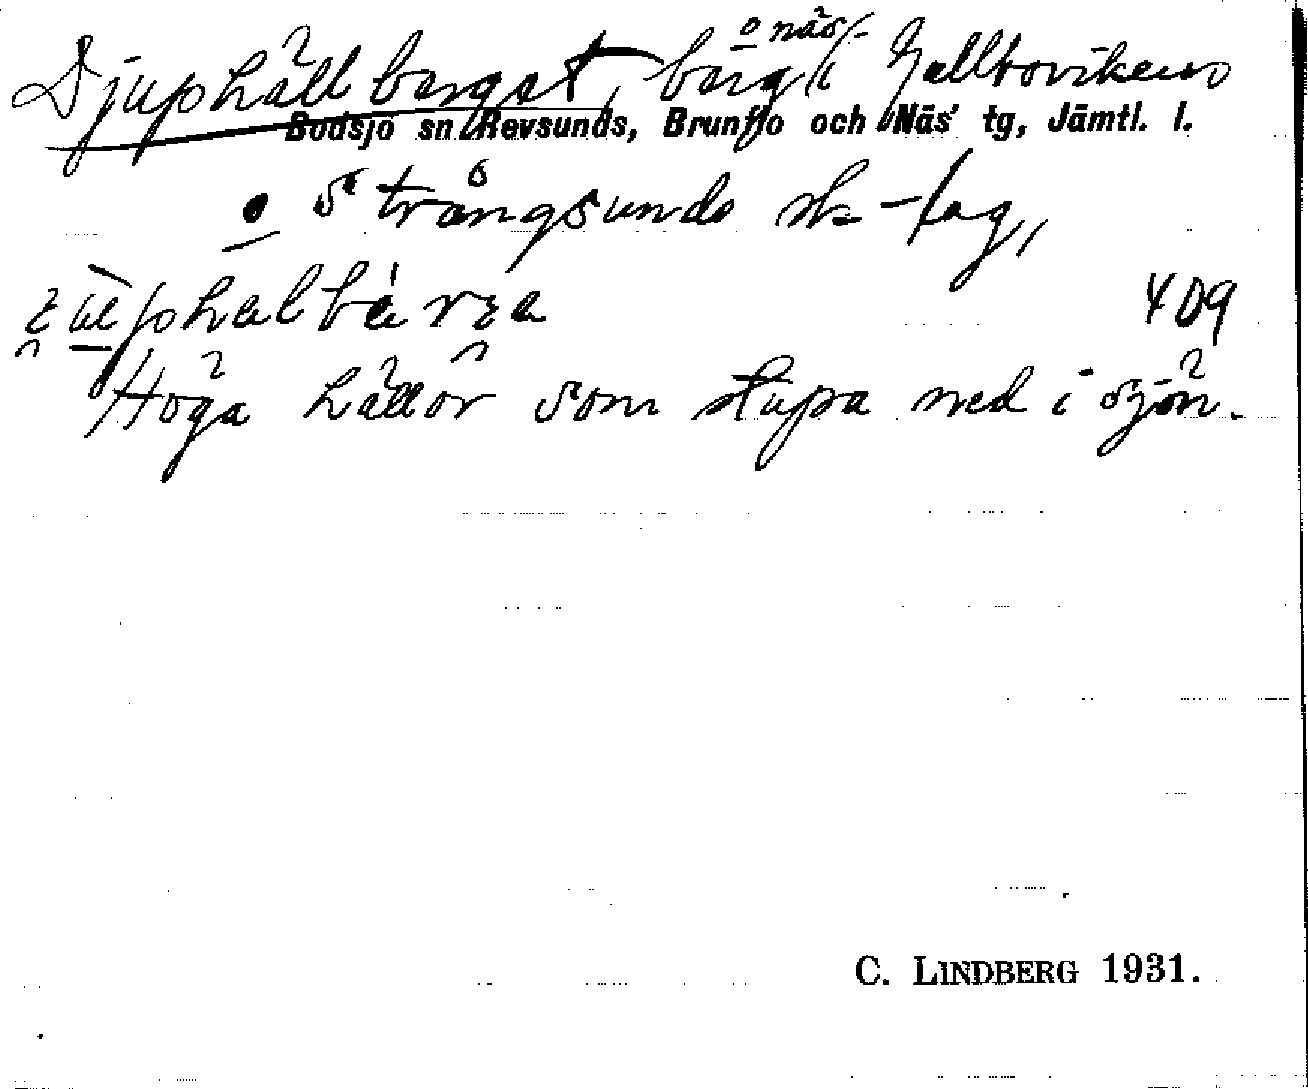 Djuphällberget, berg o näs i Galtbovikens
Bodsjö sn, Revsunds, Brunflo och Näs' tg, Jämtl. l.
o Strångsunds sk-lag,
409
Höga hällor som stupa ned i sjön.
C. LINDBERG 1931.